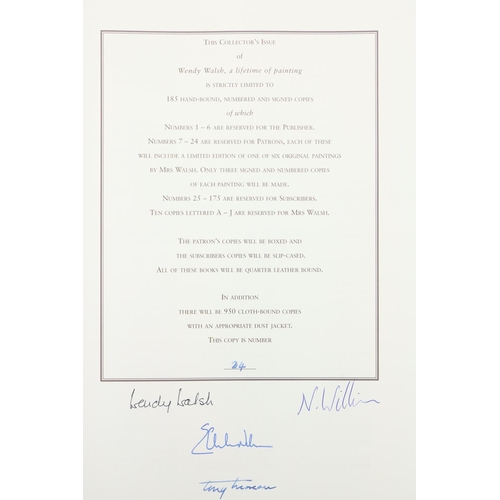 THIS COLLECTOR'S ISSUE
of
Wendy Walsh, a lifetime of painting
IS STRICTLY LIMITED TO
185 HAND-BOUND, NUMBERED AND SIGNED COPIES
of which
NUMBERS 1 – 6 ARE RESERVED FOR THE PUBLISHER.
NUMBERS 7 – 24 ARE RESERVED FOR PATRONS, EACH OF THESE
WILL INCLUDE A LIMITED EDITION OF ONE OF SIX ORIGINAL PAINTINGS
BY MRS WALSH. ONLY THREE SIGNED AND NUMBERED COPIES
OF EACH PAINTING WILL BE MADE.
NUMBERS 25 – 175 ARE RESERVED FOR SUBSCRIBERS.
TEN COPIES LETTERED A – J ARE RESERVED FOR MRS WALSH.
THE PATRON'S COPIES WILL BE BOXED AND
THE SUBSCRIBERS COPIES WILL BE SLIP-CASED.
ALL OF THESE BOOKS WILL BE QUARTER LEATHER BOUND.
IN ADDITION
THERE WILL BE 950 CLOTH-BOUND COPIES
WITH AN APPROPRIATE DUST JACKET.
THIS COPY IS NUMBER
Wendy Walsh